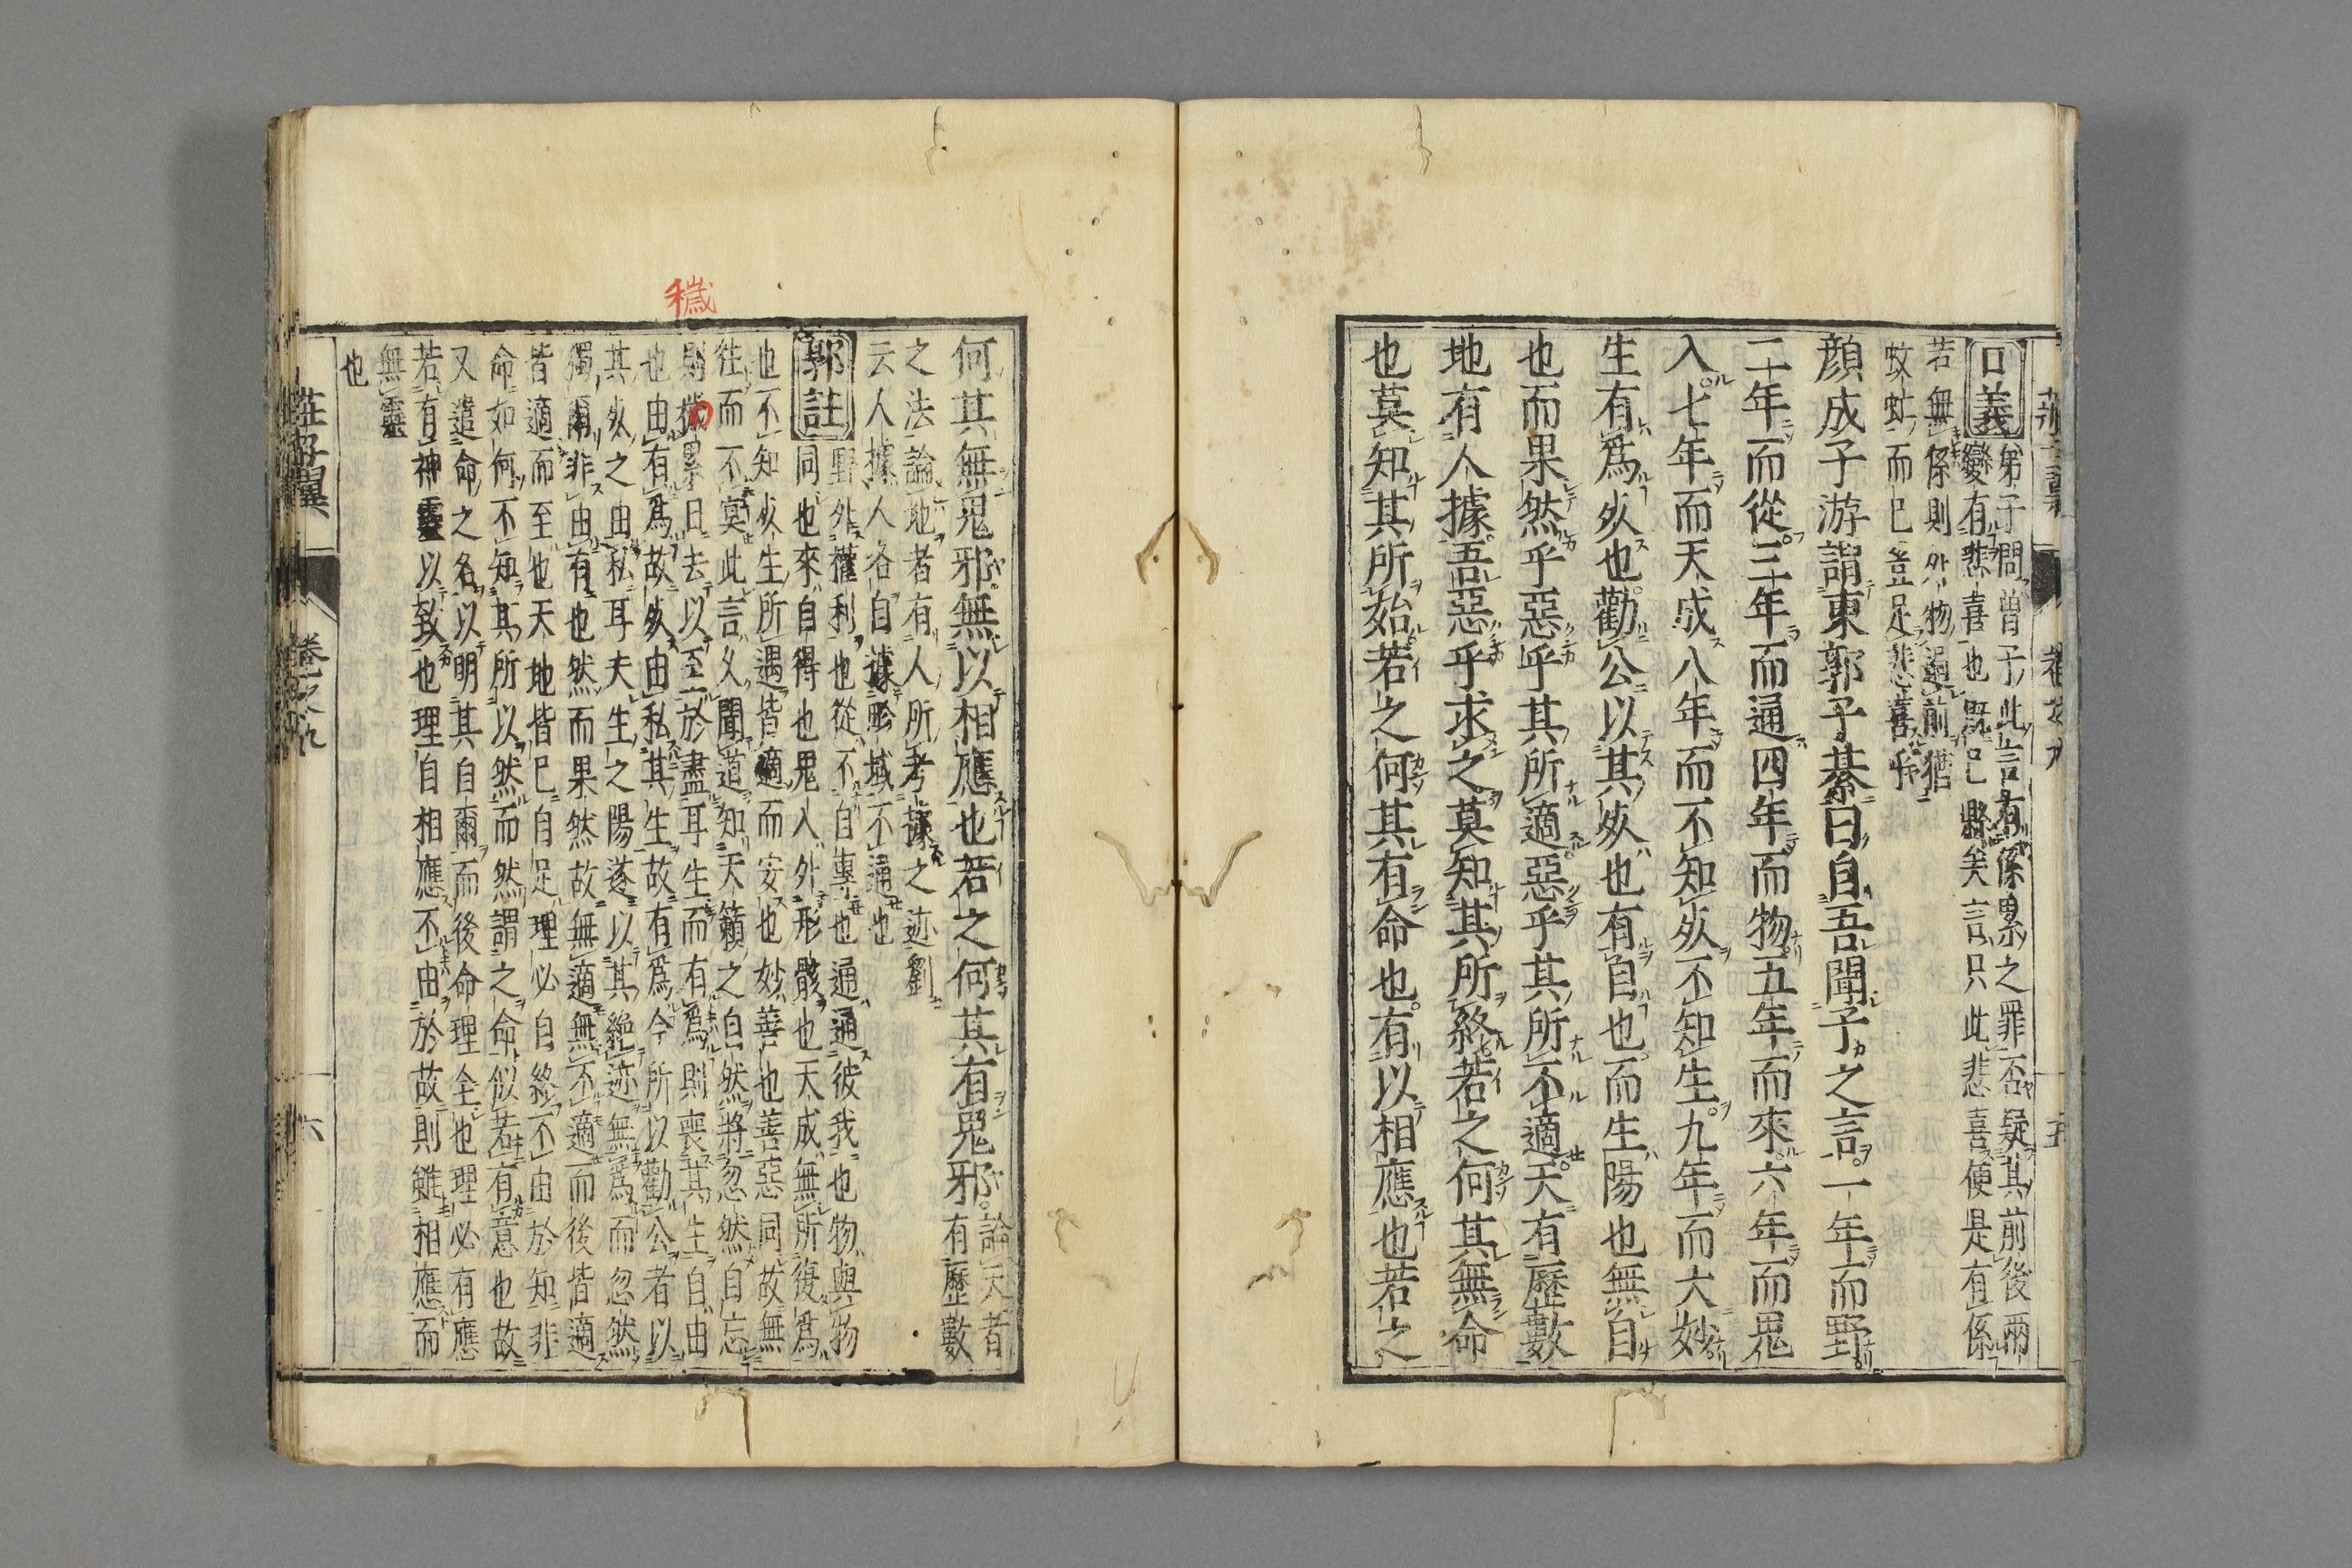 莊子翼 卷之九 五
口義
弟子問曽子此言有係累之罪否疑其前後兩
變有悲喜也既已縣矣言只此悲喜便是有係
若無係則外物過前猶
蚊虻而已豈足悲喜乎
顏成子游謂東郭子綦曰自吾聞子之言一年而野
二年而從三年而通四年而物五年而來六年而鬼
入七年而天成八年而不知死不知生九年而大妙
生有爲死也勸公以其死也有自也而生陽也無自
也而果然乎惡乎其所適惡乎其所不適天有歷數
地有人據吾惡乎求之莫知其所終若之何其無命
也莫知其所始若之何其有命也有以相應也若之
何其無鬼邪無以相應也若之何其有鬼邪
論天者
有歷數
之法論地者有人所考據之迹劉
云人據人各自據畛域不通也
郭註
野外權利也從不自專也通通彼我也物與物
同也來自得也鬼入外形骸也天成無所復爲
也不知死生所遇皆適而安也妙善也善惡同故無
往而不冥此言久聞道知天籟之自然將忽然自忘
則穢累日去以至於盡耳生而有爲則喪其生自由
也由有爲故死由私其生故有爲今所以勸公者以
其死之由私耳夫生之陽遂以其絶迹無爲而忽然
獨爾非由有也然而果然故無適無不適而後皆適
皆適而至也天地皆已自足理必自終不由於知非
命如何不知其所以然而然謂之命似若有意也故
又遣命之名以明其自爾而後命理全也理必有應
若有神靈以致也理自相應不由於故則雖相應而
無靈
也
穢
莊子翼 卷之九 六